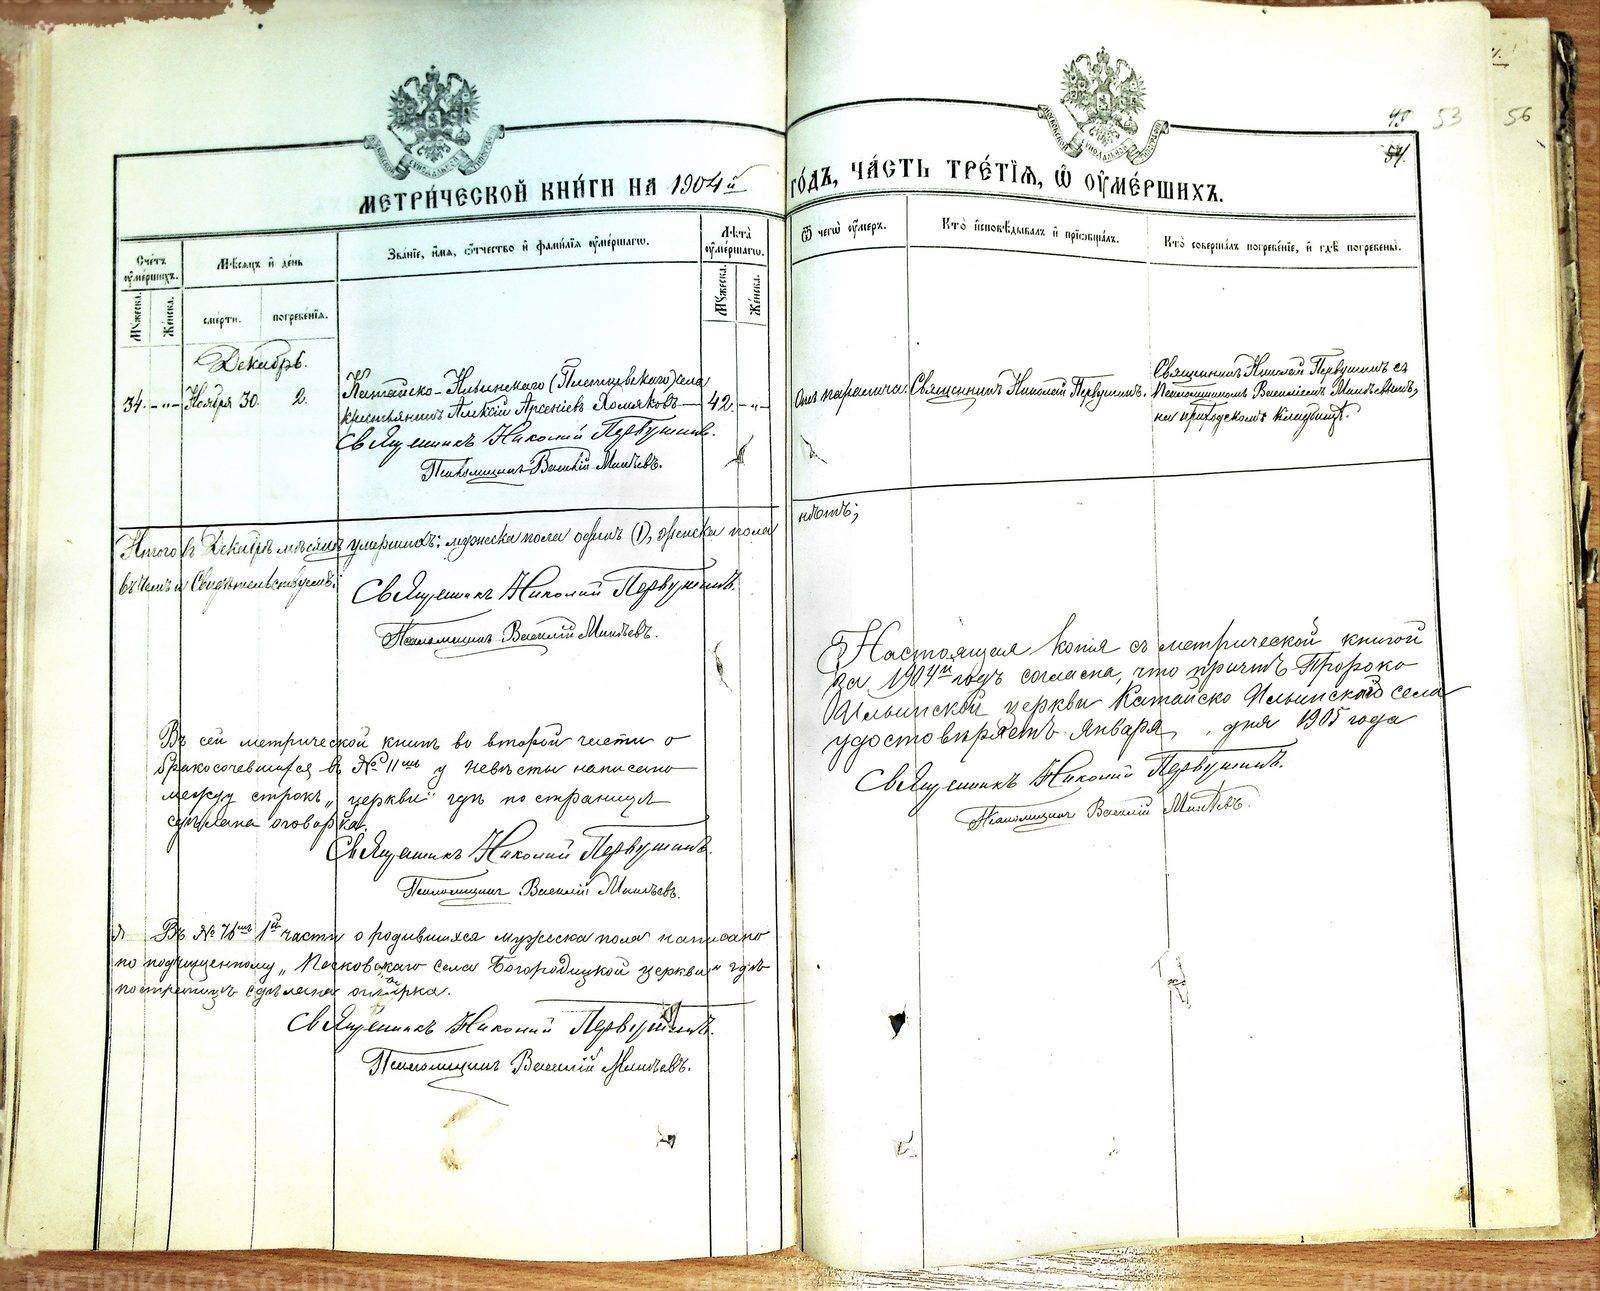 МЕТРИ́ЧЕСКОЙ КНИ́ГИ НА 1904й ГО́ДЪ, ЧА́СТЬ ТРЕ́ТІѦ, Ѡ҆ ОУ҆МЕ́РШИХЪ.
48 53 56
54.
Сче́тъ оу҆ме́ршихъ.
Мѣсяцъ и҆ де́нь
Зва́ніе, и҆́мя, ѻ҆́тчество и҆ фами́лія оу҆ме́ршагѡ.
Лѣта̀ оу҆ме́ршагѡ.
Ѿ чегѡ̀ оу҆́меръ.
Кто̀ и҆сповѣ́дывалъ и҆ прїѡбща́лъ.
Кто̀ соверша́лъ погребе́ніе, и҆ гдѣ̀ погребены̀.
Му́жеска.
Же́нска.
сме́рти.
погребе́нїѧ.
Му́жеска.
Же́нска.
Декабрь.
34. – „ – Ноября 30. 2. Катайско-Ильинскаго (Плетневскаго) села
крестьянинъ Алексій Арсеніевъ Хомяковъ – 42. – „ –
Отъ паралича.
Священникъ Николай Первушинъ.
Священникъ Николай Первушинъ съ
Псаломщикомъ Василіемъ Минѣевымъ,
на приходскомъ кладбищѣ.
Священникъ Николай Первушинъ.
Псаломщикъ Василій Минѣевъ.
Итого въ Декабрѣ мѣсяцѣ умершихъ: мужеска пола одинъ (1), женска пола нѣтъ;
въ чемъ и свидѣтельствуемъ:
Священникъ Николай Первушинъ.
Псаломщикъ Василій Минѣевъ.
Въ сей метрической книгѣ во второй части о
бракосочетавшихся въ № 11мъ у невѣсты написано
между строкъ „церкви“ гдѣ по страницѣ
сдѣлана оговорка.
Священникъ Николай Первушинъ.
Псаломщикъ Василій Минѣевъ.
Въ № 76мъ 1й части о родившихся мужеска пола написано
по подчищенному „Песковскаго села Богородицкой церкви“ гдѣ
по страницѣ сдѣлана оговорка.
Священникъ Николай Первушинъ.
Псаломщикъ Василій Минѣевъ.
Настоящая копія съ метрической книгой
за 1904й годъ согласна, что причтъ Пророко
Ильинской церкви Катайско Ильинскаго села
удостовѣряетъ Января , дня 1905 года
Священникъ Николай Первушинъ.
Псаломщикъ Василій Минѣевъ.
METRIKI.GASO-URAL.RU